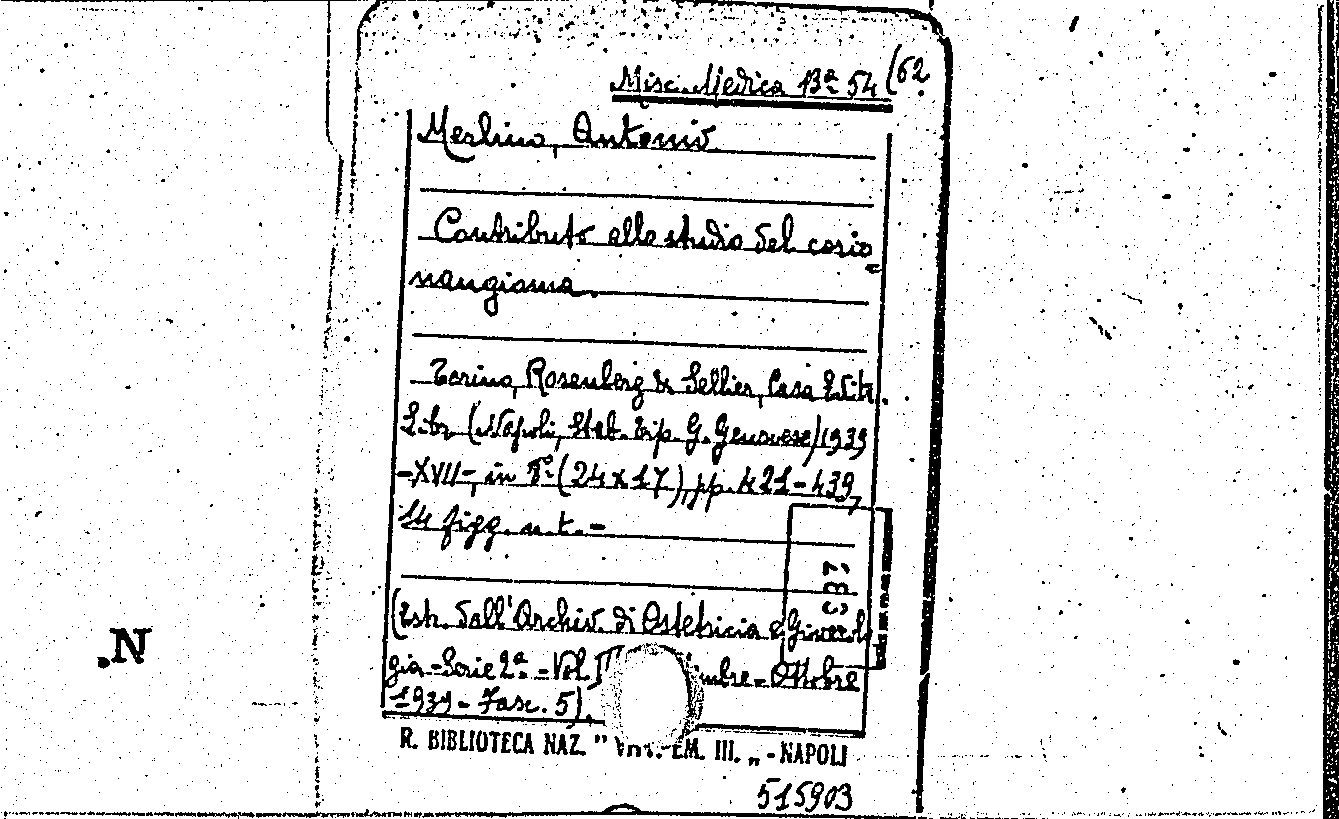 Misc. Medica Bª 54 (62
Merlino, Antonio
Contributo allo studio del corio=
nangioma.
Torino, Rosenberg & Sellier, Casa Editr.
Libr. (Napoli, Stab. Tip. G. Genovese) 1939
-XVII-, in 8º (24x17), pp. 421-439,
14 figg. n. t. -
(Estr. dall'Archiv. di Ostetricia e Ginecolo
gia - Serie 2ª. - Vol. - Ottobre
1939 - Fasc. 5).
R. BIBLIOTECA NAZ. " EM. III. „ - NAPOLI
515903
.N